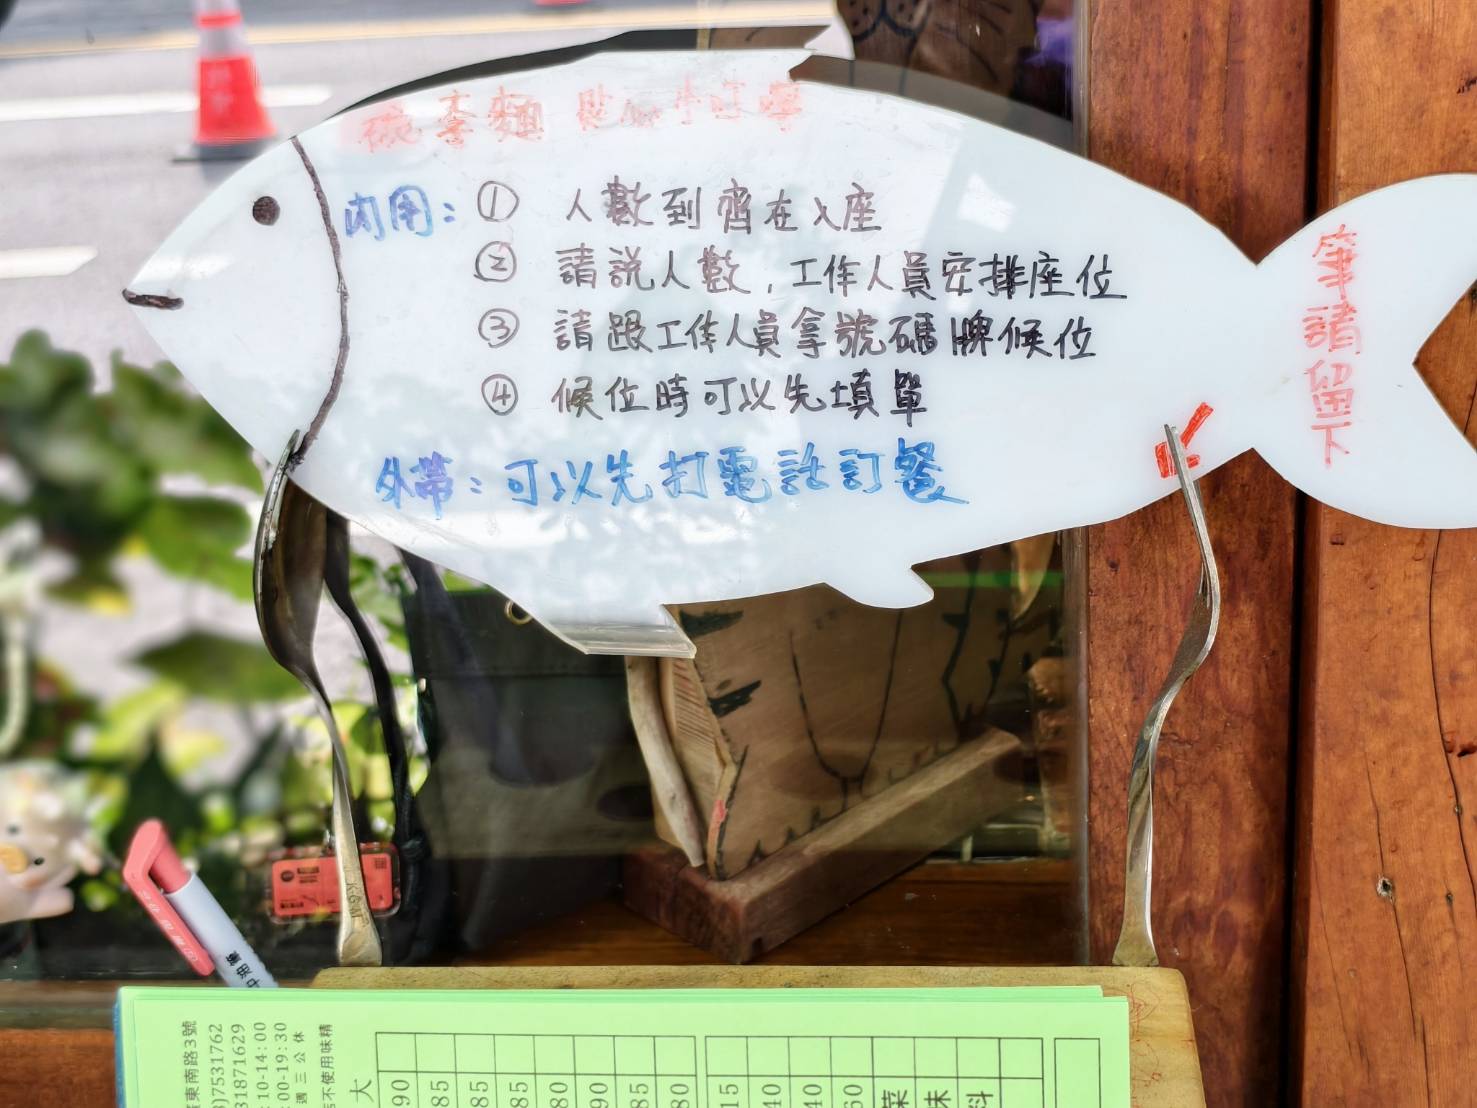 內用：① 人數到齊在入座
② 請說人數，工作人員安排座位
③ 請跟工作人員拿號碼牌候位
④ 候位時可以先填單
外帶：可以先打電話訂餐
筆請留下
東南路3號
)7531762
31871629
:10-14:00
:00-19:30
週三公休
不使用味精
大
90
85
85
85
80
90
85
80
15
40
40
60
菜
味
料